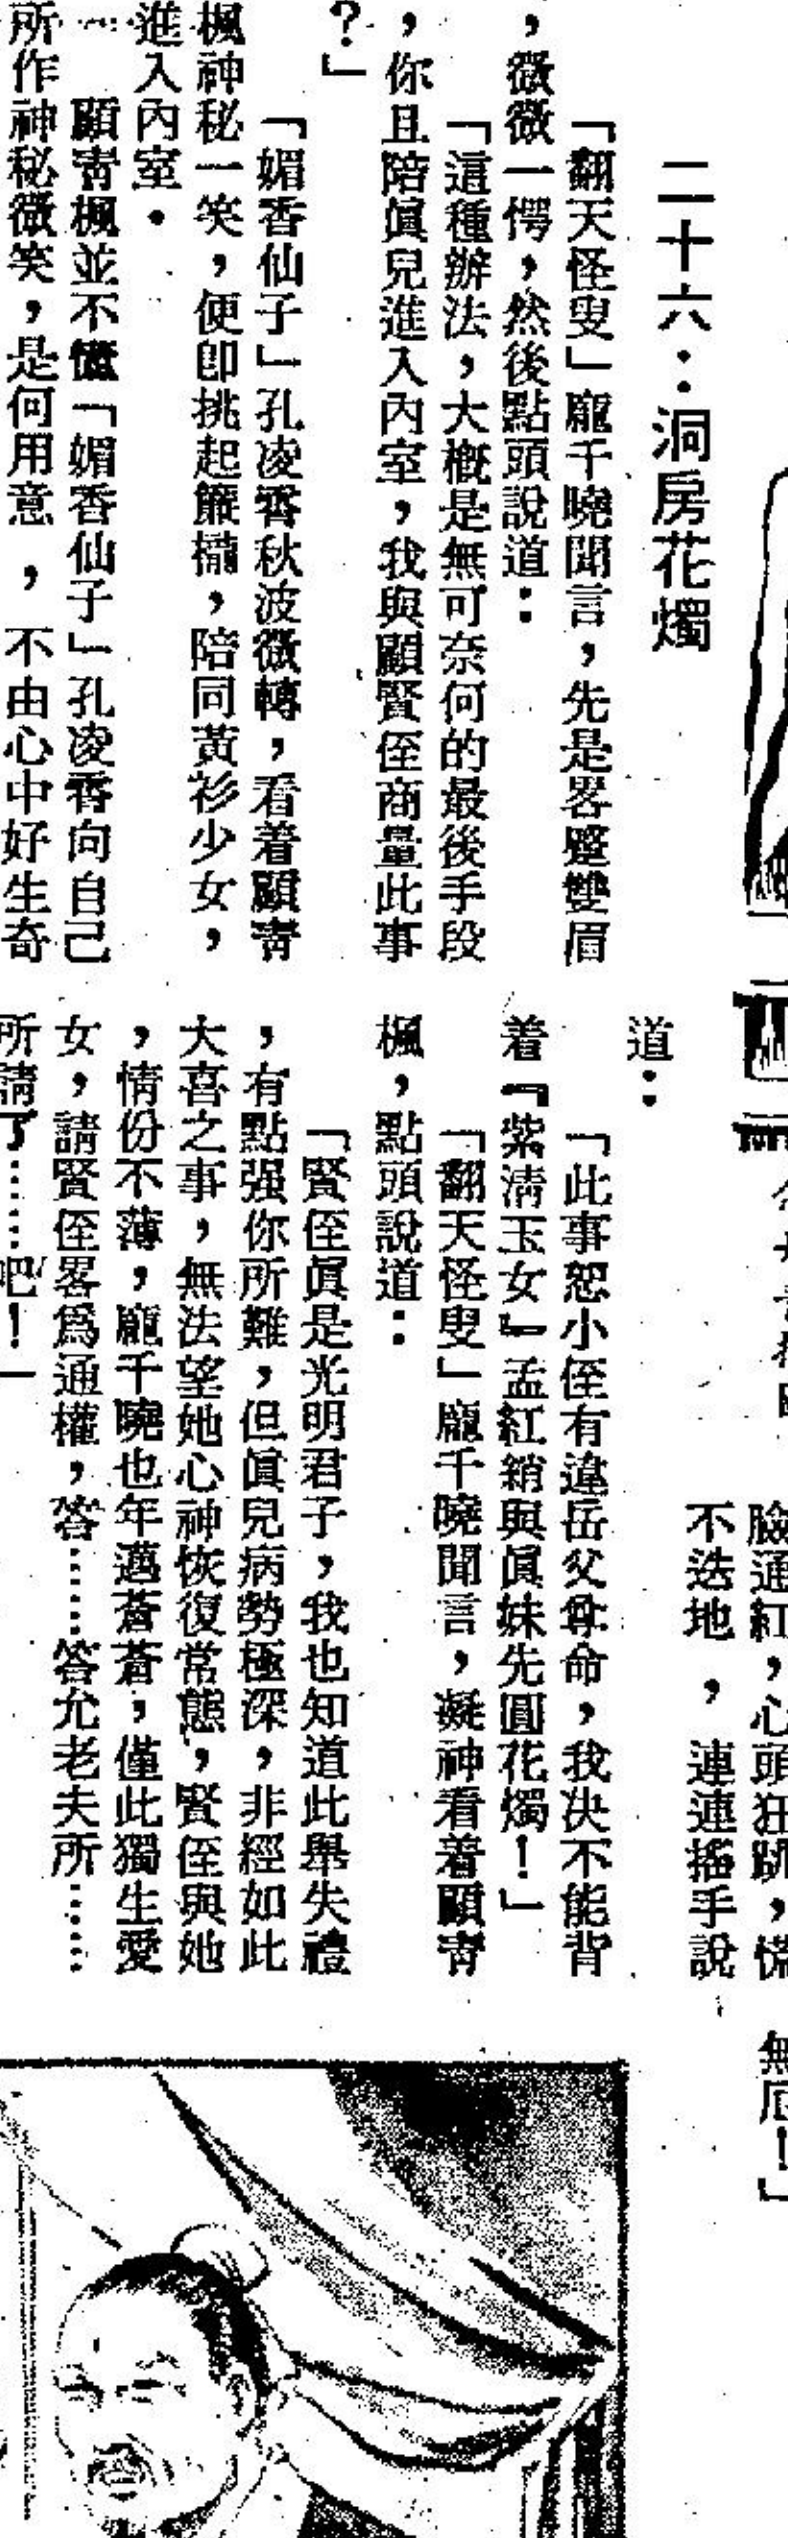 二十六：洞房花燭
「翻天怪叟」龐千曉聞言，先是畧蹙雙眉
，微微一愕，然後點頭說道：
「這種辦法，大概是無可奈何的最後手段
，你且陪眞兒進入內室，我與顧賢侄商量此事
？」
「媚香仙子」孔凌霄秋波微轉，看着顧靑
楓神秘一笑，便卽挑起簾櫳，陪同黃衫少女，
進入內室。
顧靑楓並不懂「媚香仙子」孔凌霄向自己
所作神秘微笑，是何用意，不由心中好生奇
臉通紅，心頭狂跳，慌
不迭地，連連搖手說
道：
「此事恕小侄有違岳父尊命，我決不能背
着『紫清玉女』孟紅綃與眞妹先圓花燭！」
「翻天怪叟」龐千曉聞言，凝神看着顧靑
楓，點頭說道：
「賢侄眞是光明君子，我也知道此舉失禮
，有點强你所難，但眞兒病勢極深，非經如此
大喜之事，無法望她心神恢復常態，賢侄與她
，情份不薄，龐千曉也年邁蒼蒼，僅此獨生愛
女，請賢侄畧爲通權，答……答允老夫所……
所請了……吧！」
無厎！」